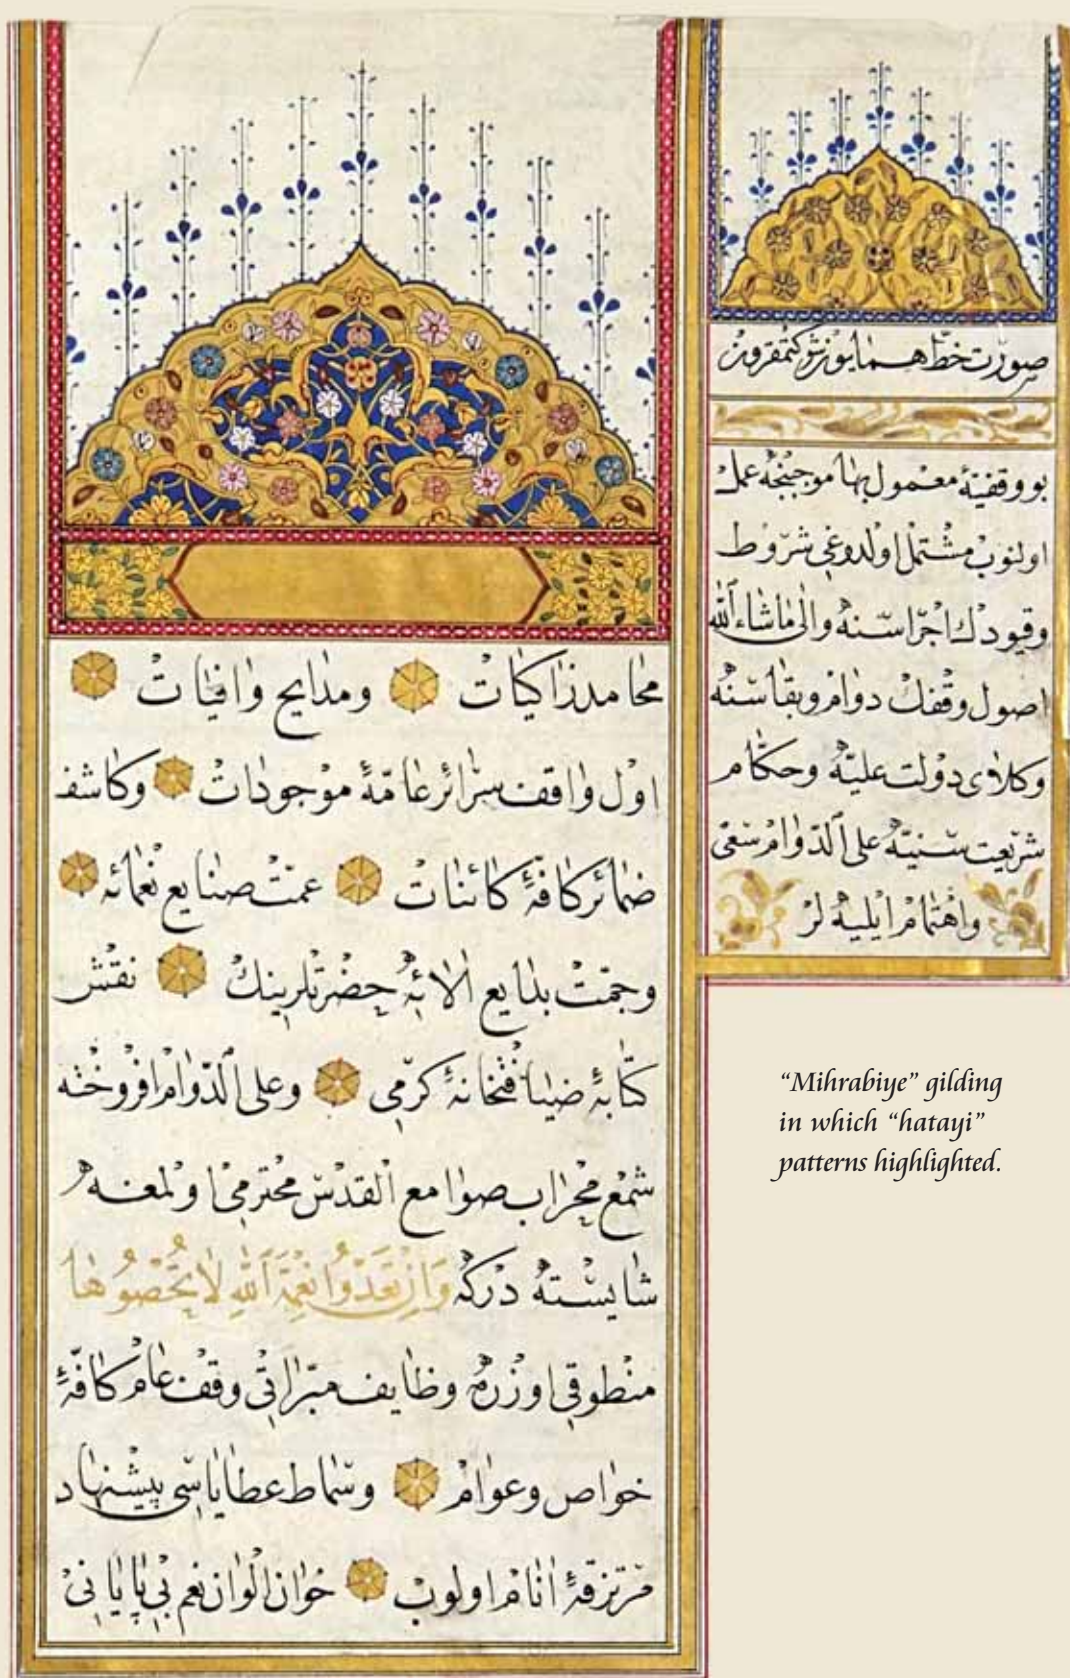 صورت خط همايون شوكتمقرون
بو وقفيۀ معمول بها موجبنجه عمل
اولنوب مشتمل اولدوغى شروط
وقيودك اجراسنه والى ماشاء الله
اصول وقفك دوام وبقاسنه
وكلاى دولت عليه وحكام
شريعت سنيه على الدوام سعى
واهتمام ايليه لر
محامد زاكيات ومدايح وافيات
اول واقف سرائر عامۀ موجودات وكاشف
ضمائر كافۀ كائنات عمت صنايع نعمائه
وجمت بدايع الائه حضرتلرينك نقش
كتابۀ ضيافتخانۀ كرمى وعلى الدوام افروخته
شمع محراب صوامع القدس محترمى ولمعه
شايسته دركه وَاِنْ تَعُدُّوا نِعْمَةَ اللّٰهِ لَا تُحْصُوهَا
منطوقى اوزره وظايف مبراتى وقف عام كافۀ
خواص وعوام وسماط عطاياسى پيشنهاد
مرتزقۀ انام اولوب خوان الوان نعم بى پايانى
“Mihrabiye” gilding
in which “hatayi”
patterns highlighted.